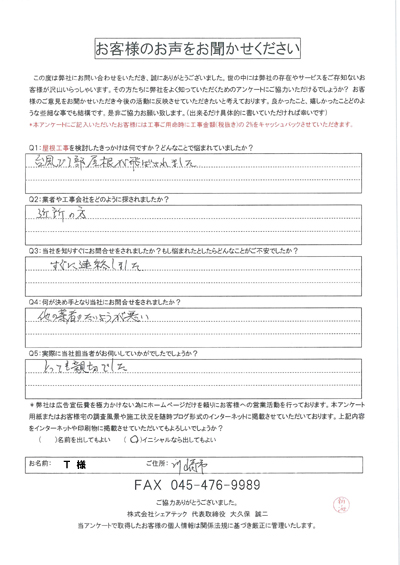 お客様のお声をお聞かせください
この度は弊社にお問い合わせをいただき、誠にありがとうございました。世の中には弊社の存在やサービスをご存知ないお
客様が沢山いらっしゃいます。その方たちに弊社をよく知っていただくためのアンケートにご協力いただけるでしょうか? お客
様のご意見をお聞かせいただき今後の活動に反映させていただきたいと考えております。良かったこと、嬉しかったことどのよう
な些細な事でも結構です、是非ご協力お願い致します。(出来るだけ具体的に書いていただければ幸いです)
*本アンケートにご記入いただいたお客様には工事ご用命時に工事金額(税抜き)の2%をキャッシュバックさせていただきます。
Q1:屋根工事を検討したきっかけは何ですか? どんなことで悩まれていましたか?
台風で1部屋根が飛ばされました
Q2:業者や工事会社をどのように探されましたか?
近所の店
Q3:当社を知りすぐにお問合せをされましたか?もし悩まれたとしたらどんなことがご不安でしたか?
すぐに連絡しました
Q4:何が決め手となり当社にお問合せをされましたか?
他の業者のたいようが悪い
Q5:実際に当社担当者がお伺いしていかがでしたでしょうか?
とっても親切でした
*弊社は広告宣伝費を極力かけない為にホームページだけを頼りにお客様への営業活動を行っております。本アンケート
用紙またはお客様宅の調査風景や施工状況を随時ブログ形式のインターネットに掲載させていただいております。上記内容
をインターネットや印刷物に掲載させていただいてもよろしいでしょうか?
( )名前を出してもよい (○)イニシャルなら出してもよい
お名前: T 様 ご住所: 川崎市
FAX 045-476-9989
ご協力ありがとうございました。
株式会社シェアテック 代表取締役 大久保 誠二
当アンケートで取得したお客様の個人情報は関係法規に基づき厳正に管理いたします。